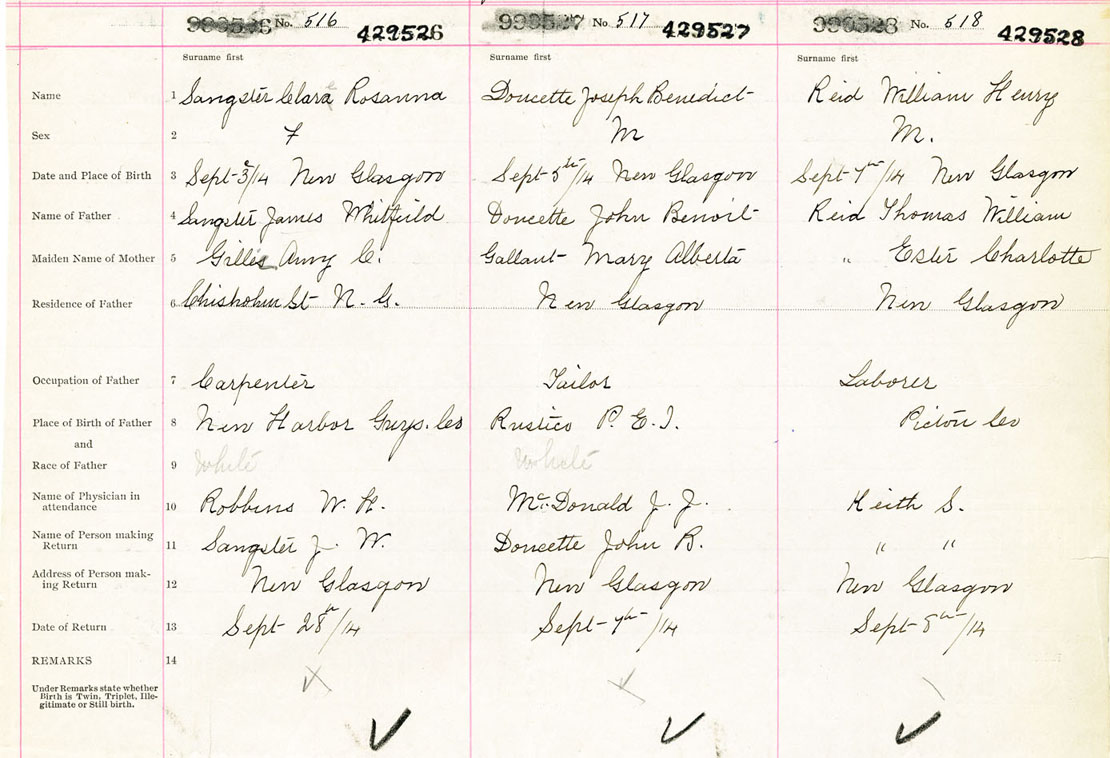 No. 516 429526 No 517 429527 No. 518 429528
Surname first Surname first Surname first
Name 1 Sangster Clara Rosanna Doucette Joseph Benedict Reid William Henry
Sex 2 F M M.
Date and Place of Birth 3 Sept 3/14 New Glasgow Sept 5th/14 New Glasgow Sept 7th/14 New Glasgow
Name of Father 4 Sangster James Whitfield Doucette John Benoit Reid Thomas William
Maiden Name of Mother 5 Gillis Amy C. Gallant Mary Alberta " Ester Charlotte
Residence of Father 6 Chisholm St N. G. New Glasgow New Glasgow
Occupation of Father 7 Carpenter Tailor Laborer
Place of Birth of Father 8 New Harbor Guys. Co Rustico P. E. I. Pictou Co
and
Race of Father 9 White White
Name of Physician in
attendance 10 Robbins W. H. McDonald J. J. Keith S.
Name of Person making
Return 11 Sangster J. W. Doucette John B. " "
Address of Person mak-
ing Return 12 New Glasgow New Glasgow New Glasgow
Date of Return 13 Sept 28th/14 Sept 7th/14 Sept 8th/14
REMARKS 14
Under Remarks state whether
Birth is Twin, Triplet, Ille-
gitimate or Still birth.